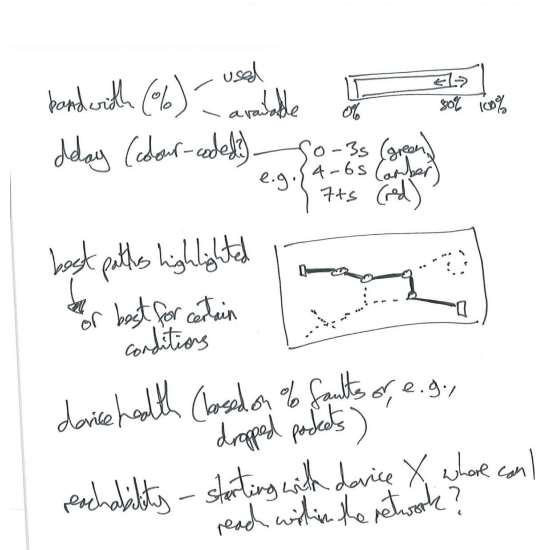 bandwidth (%) used
available
0% 80% 100%
delay (colour-coded?)
e.g. 0-3s (green)
4-6s (amber)
7+s (red)
best paths highlighted
or best for certain
conditions
device health (based on % faults or, e.g.,
dropped packets)
reachability - starting with device X, where can I
reach within the network?